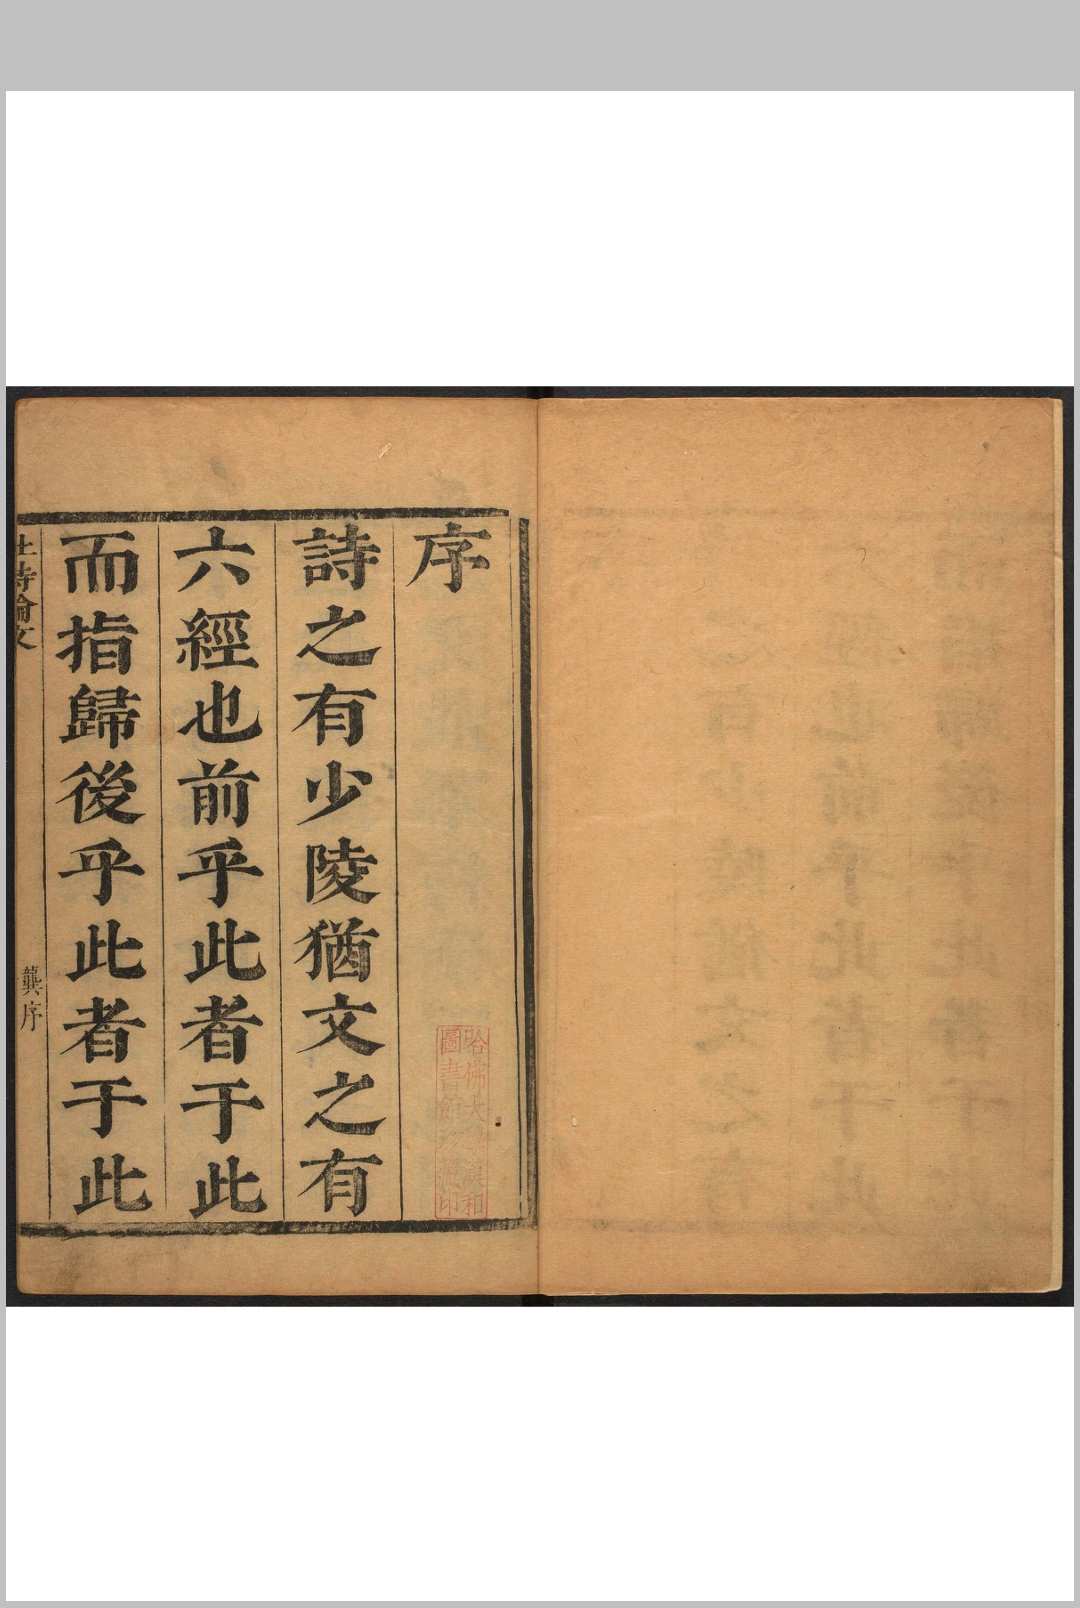 序
詩之有少陵猶文之有
六經也前乎此者于此
而指歸後乎此者于此
詩論文
龔序
哈佛大學漢和
圖書館珍藏印